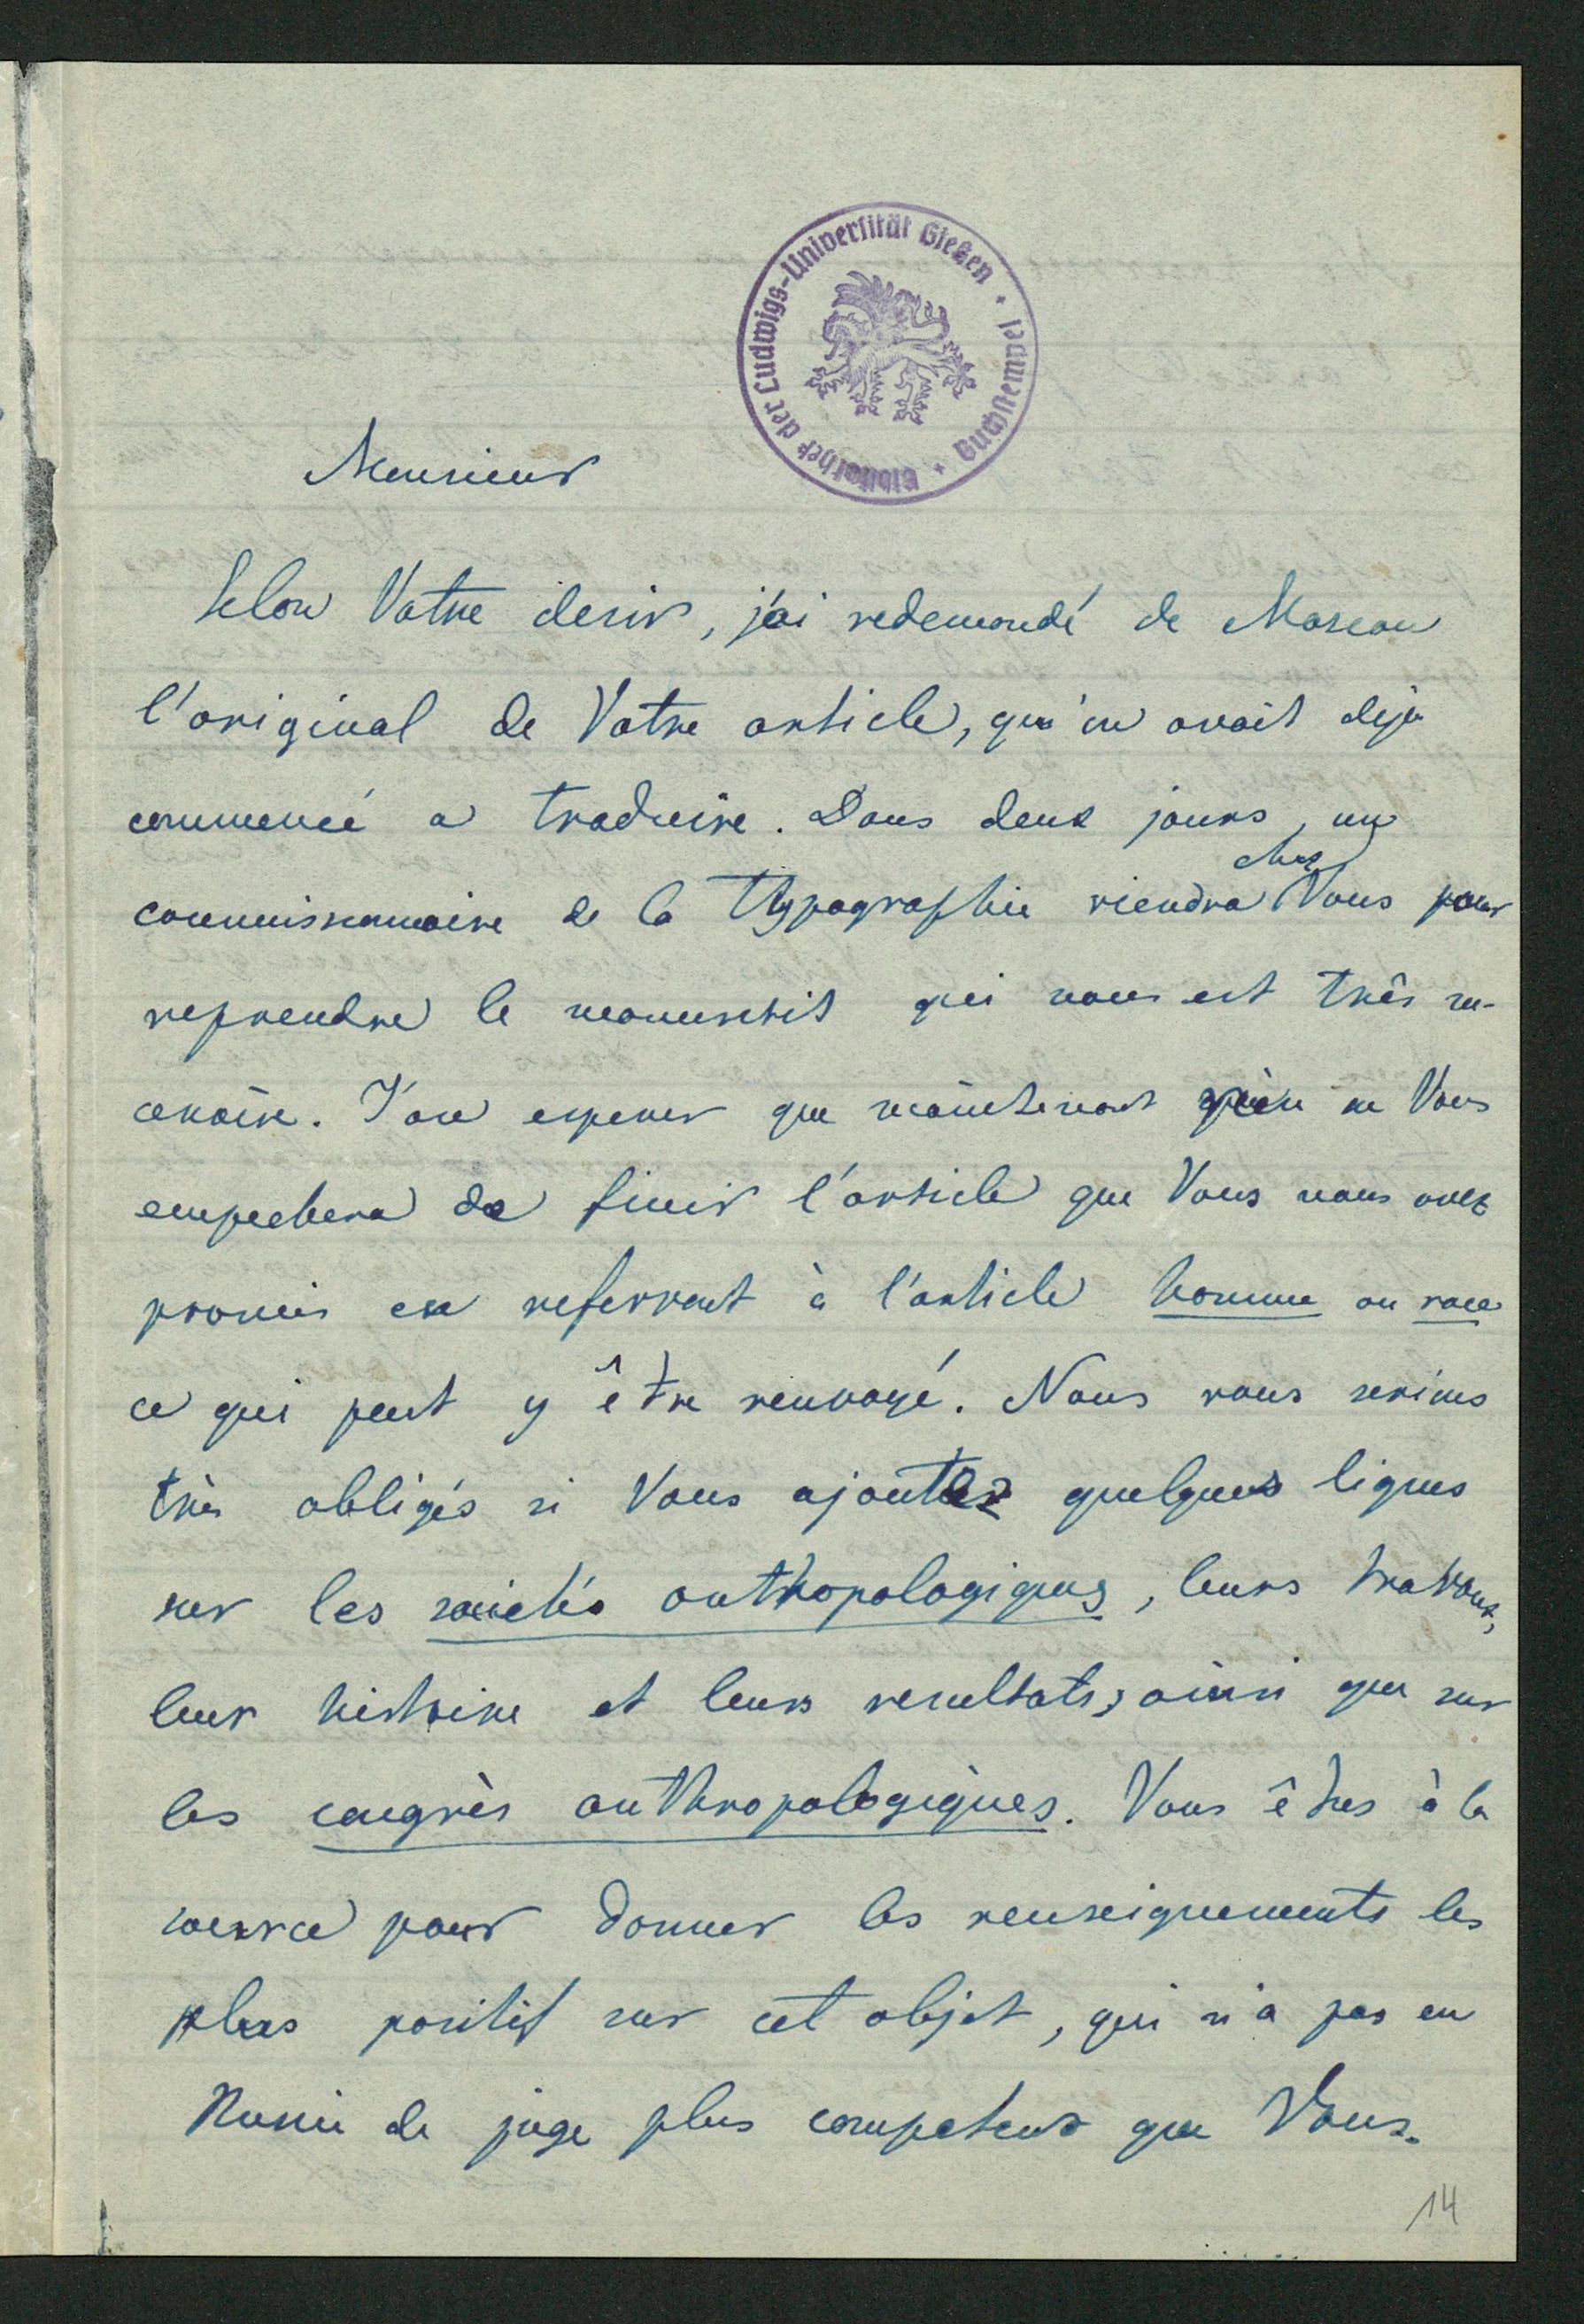 Bibliothek der Ludwigs-Universität Gießen + Buchstempel +
Monsieur
Selon Votre desir, j'ai redemandé de Moscou
l'original de Votre article, qu'on avait dejà
commencé a traduire. Dans deux jours, un
chez
commissionnaire de la Thypographie viendra Vous pour
reprendre le manuscrit qui nous est très ne-
cessaire. J'ose esperer que maintenant rien ne Vous
empechera de finir l'article que Vous nous avez
promis en referrant à l'article homme ou race
ce qui peut y être renvoyé. Nous vous serions
très obligés si Vous ajoutez quelques lignes
sur les societés anthopologiques, leurs travaux,
leur histoire et leurs resultats, ainsi que sur
les congrès anthropologiques. Vous êtes à la
source pour donner les renseignements les
plus positif sur cet objet, qui n'a pas en
Russie de juge plus competent que Vous.
14